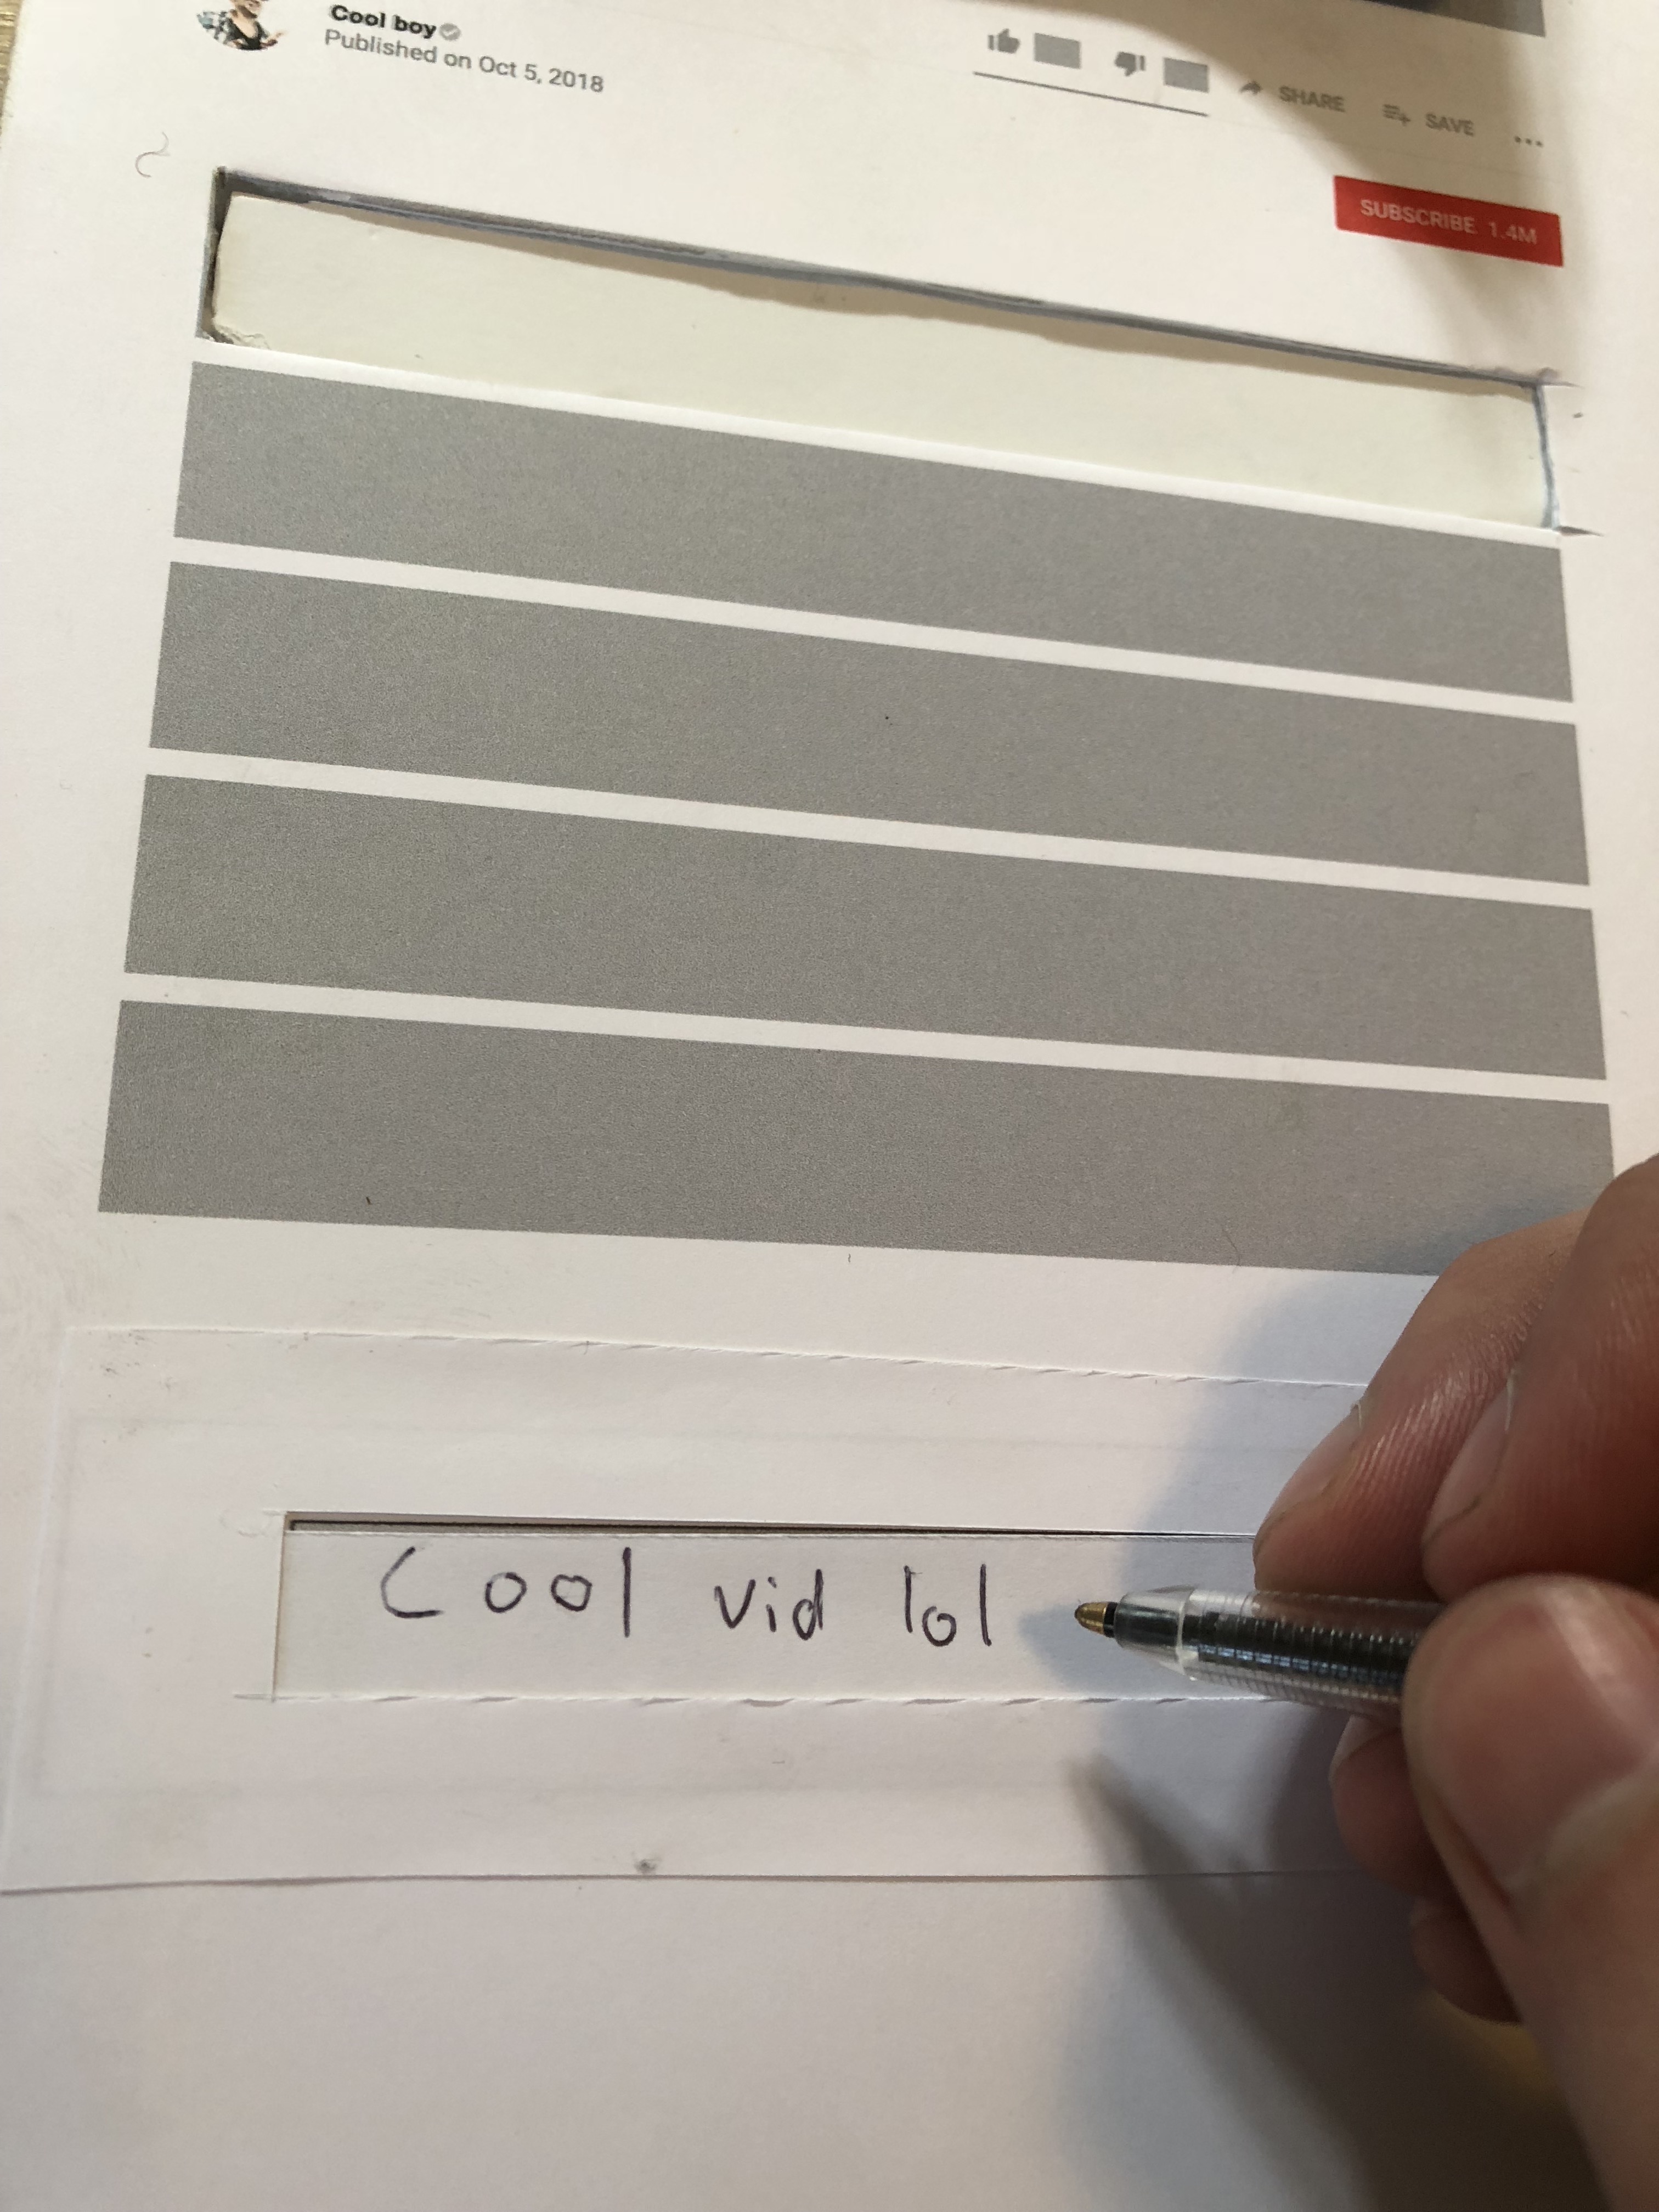 Cool boy
Published on Oct 5, 2018
SHARE
SAVE
...
SUBSCRIBE 1.4M
Cool vid lol